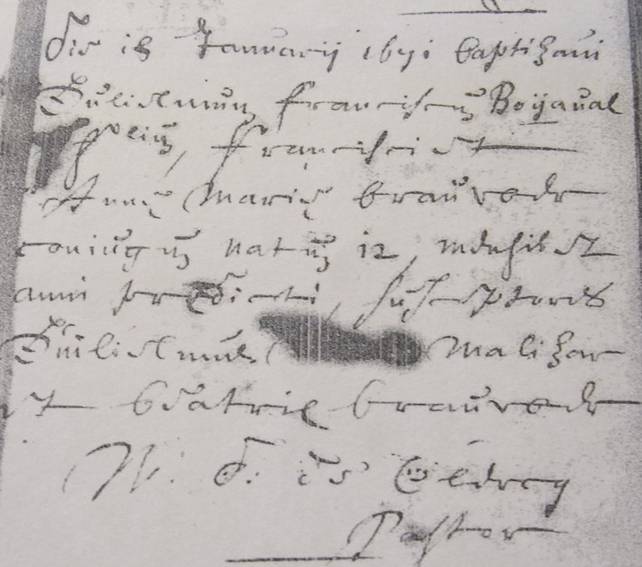 Die 18 Januarij 1671 baptizavi
Guilielmum franciscum Boijaval
filium, francisci et
Annæ Mariæ brauwede
coniugum natum 12, mensis et
anni predicti, susceptores
Guilielmus Malizar
et beatrix brauwede
de
Pastor